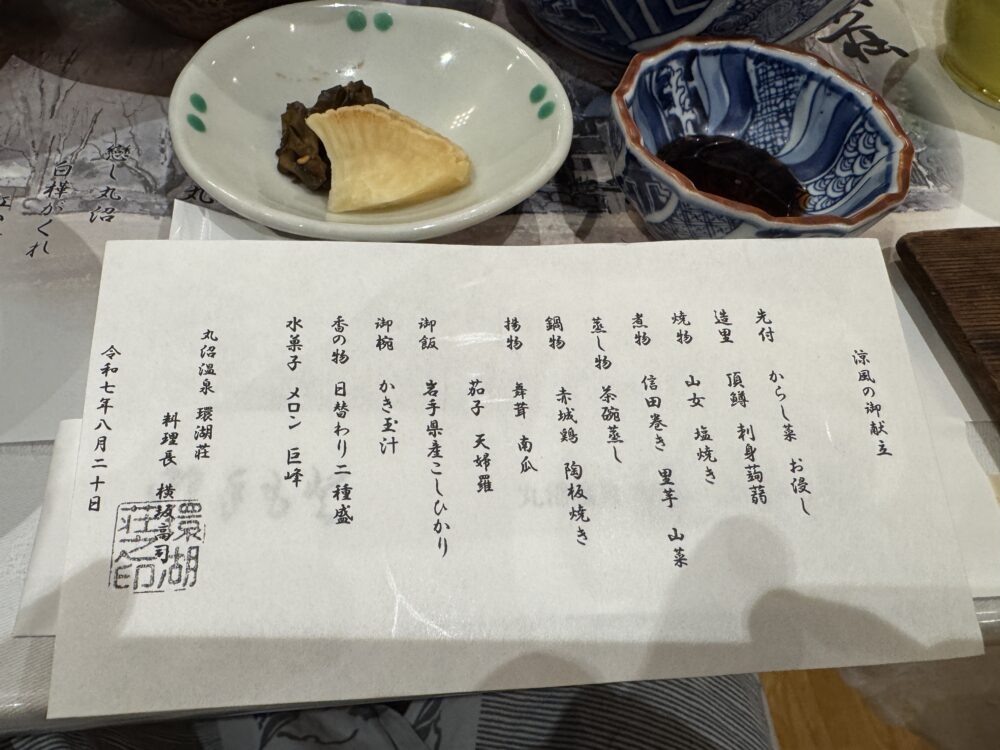 涼風の御献立
先付　からし菜　お浸し
造里　頂鱒　刺身蒟蒻
焼物　山女　塩焼き
煮物　信田巻き　里芋　山菜
蒸し物　茶碗蒸し
鍋物　赤城鶏　陶板焼き
揚物　舞茸　南瓜
茄子　天婦羅
御飯　岩手県産こしひかり
御椀　かき玉汁
香の物　日替わり二種盛
水菓子　メロン　巨峰
丸沼温泉　環湖荘
料理長　横坂高司
令和七年八月二十日
環湖
荘之印
荘
戀し丸沼
白樺がくれ
丸